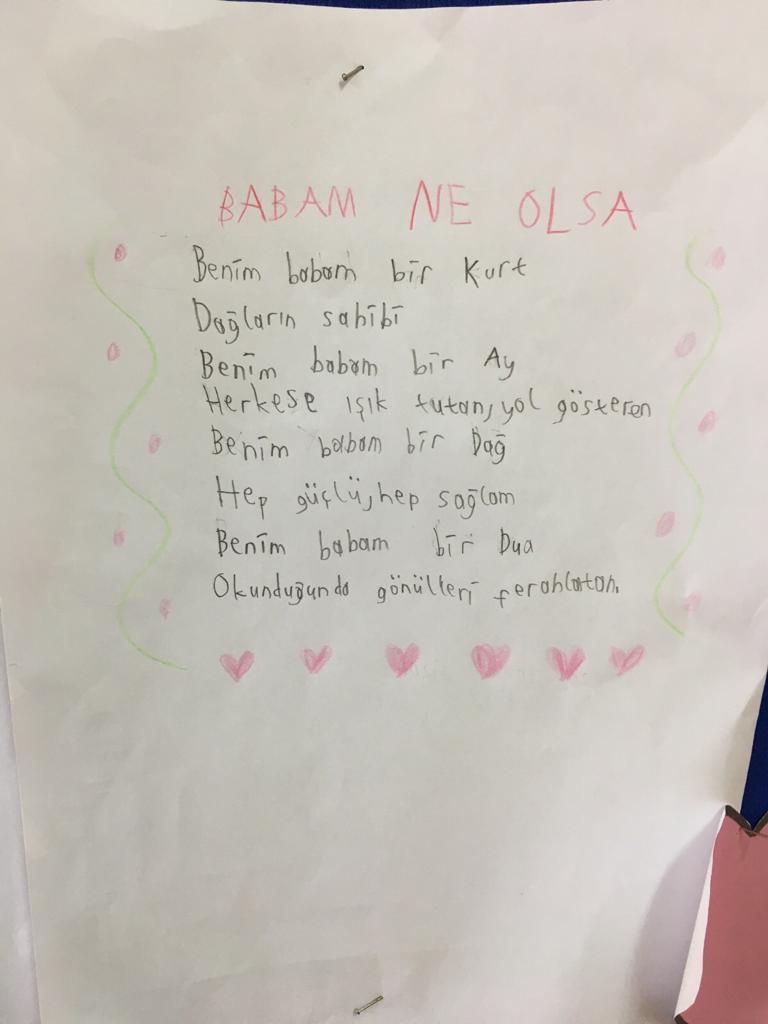 BABAM NE OLSA
Benim babam bir Kurt
Dağların sahibi
Benim babam bir Ay
Herkese ışık tutan, yol gösteren
Benim babam bir Dağ
Hep güçlü, hep sağlam
Benim babam bir Dua
Okunduğunda gönülleri ferahlatan.